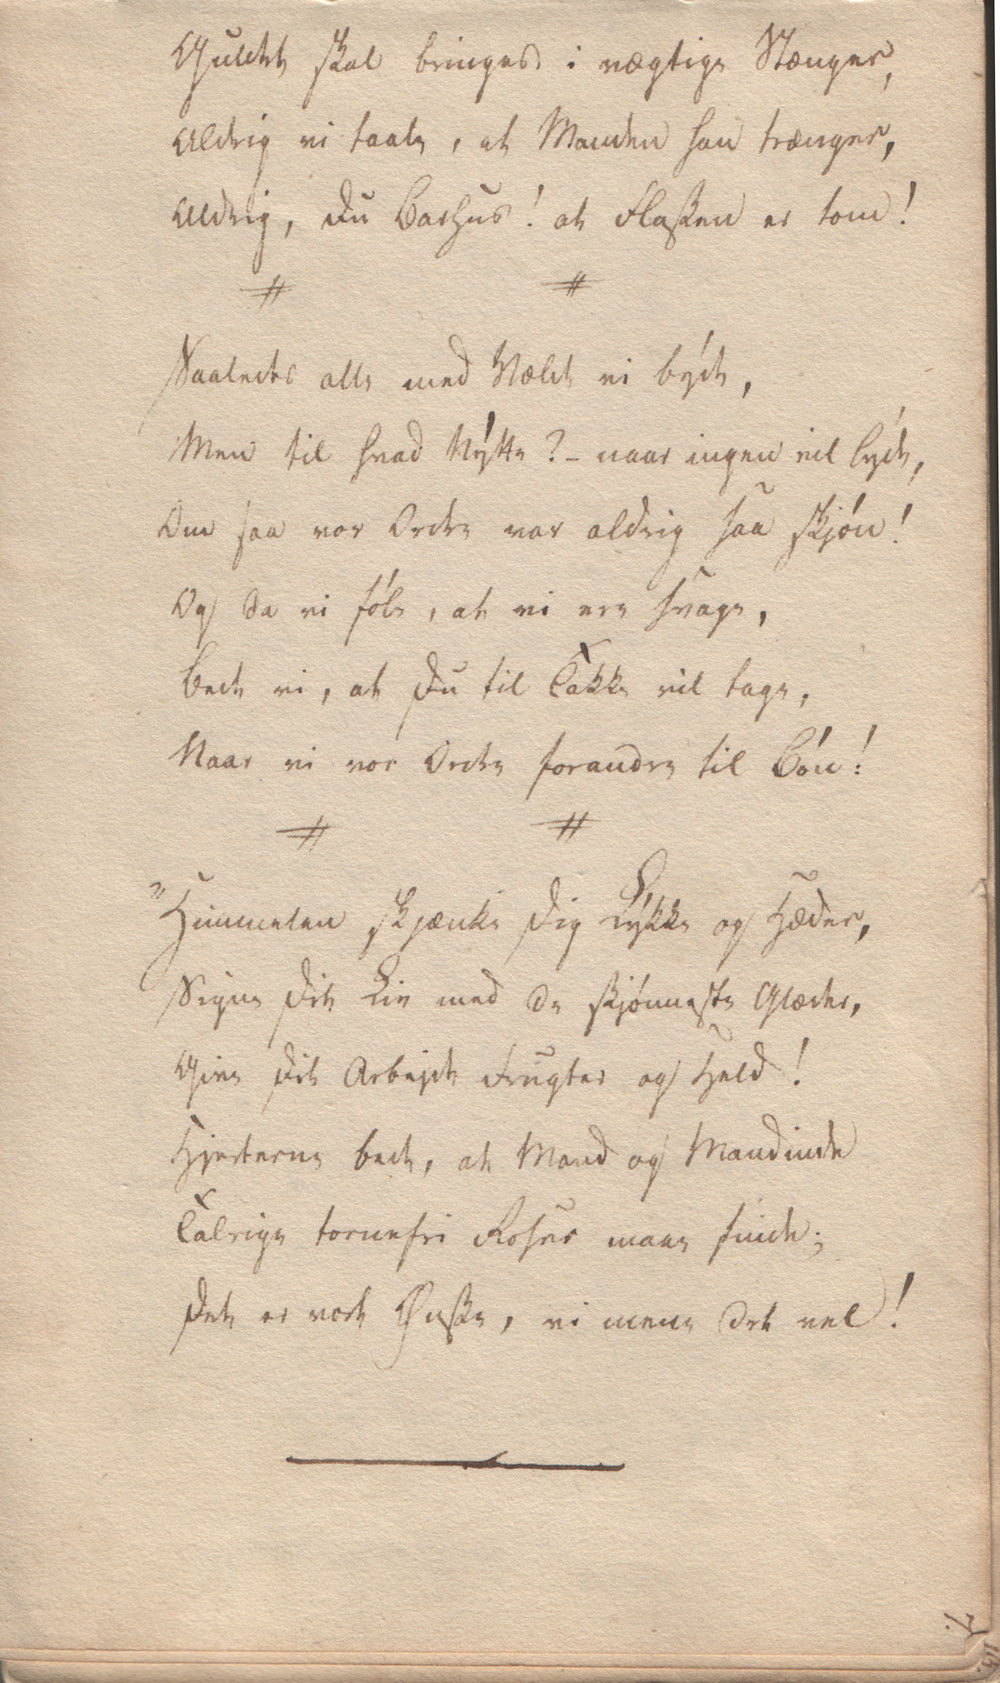 Guldet skal bringes i vægtige Stænger,
Aldrig vi taale, at Manden han trænger,
Aldrig, Du Bachus! at Flasken er tom!
# #
Saaledes alle med Vælde vi byde,
Men til hvad Nytte? – naar ingen vil lyde,
Om saa vor Ordre var aldrig saa skjøn!
Og da vi føle, at vi ere svage,
Bede vi, at Du til Takke vil tage,
Naar vi vor Ordre forandre til Bøn!
# #
"Himmelen skjænke Dig Lykke og Hæder,
Signe Dit Liv med de skjønneste Glæder,
Give Dit Arbejde Frugter og Held!
Hjerterne bede, at Mand og Mandinde
Talrige tornefri Roser maae finde;
Det er vort Ønske, vi mene det vel!
7.